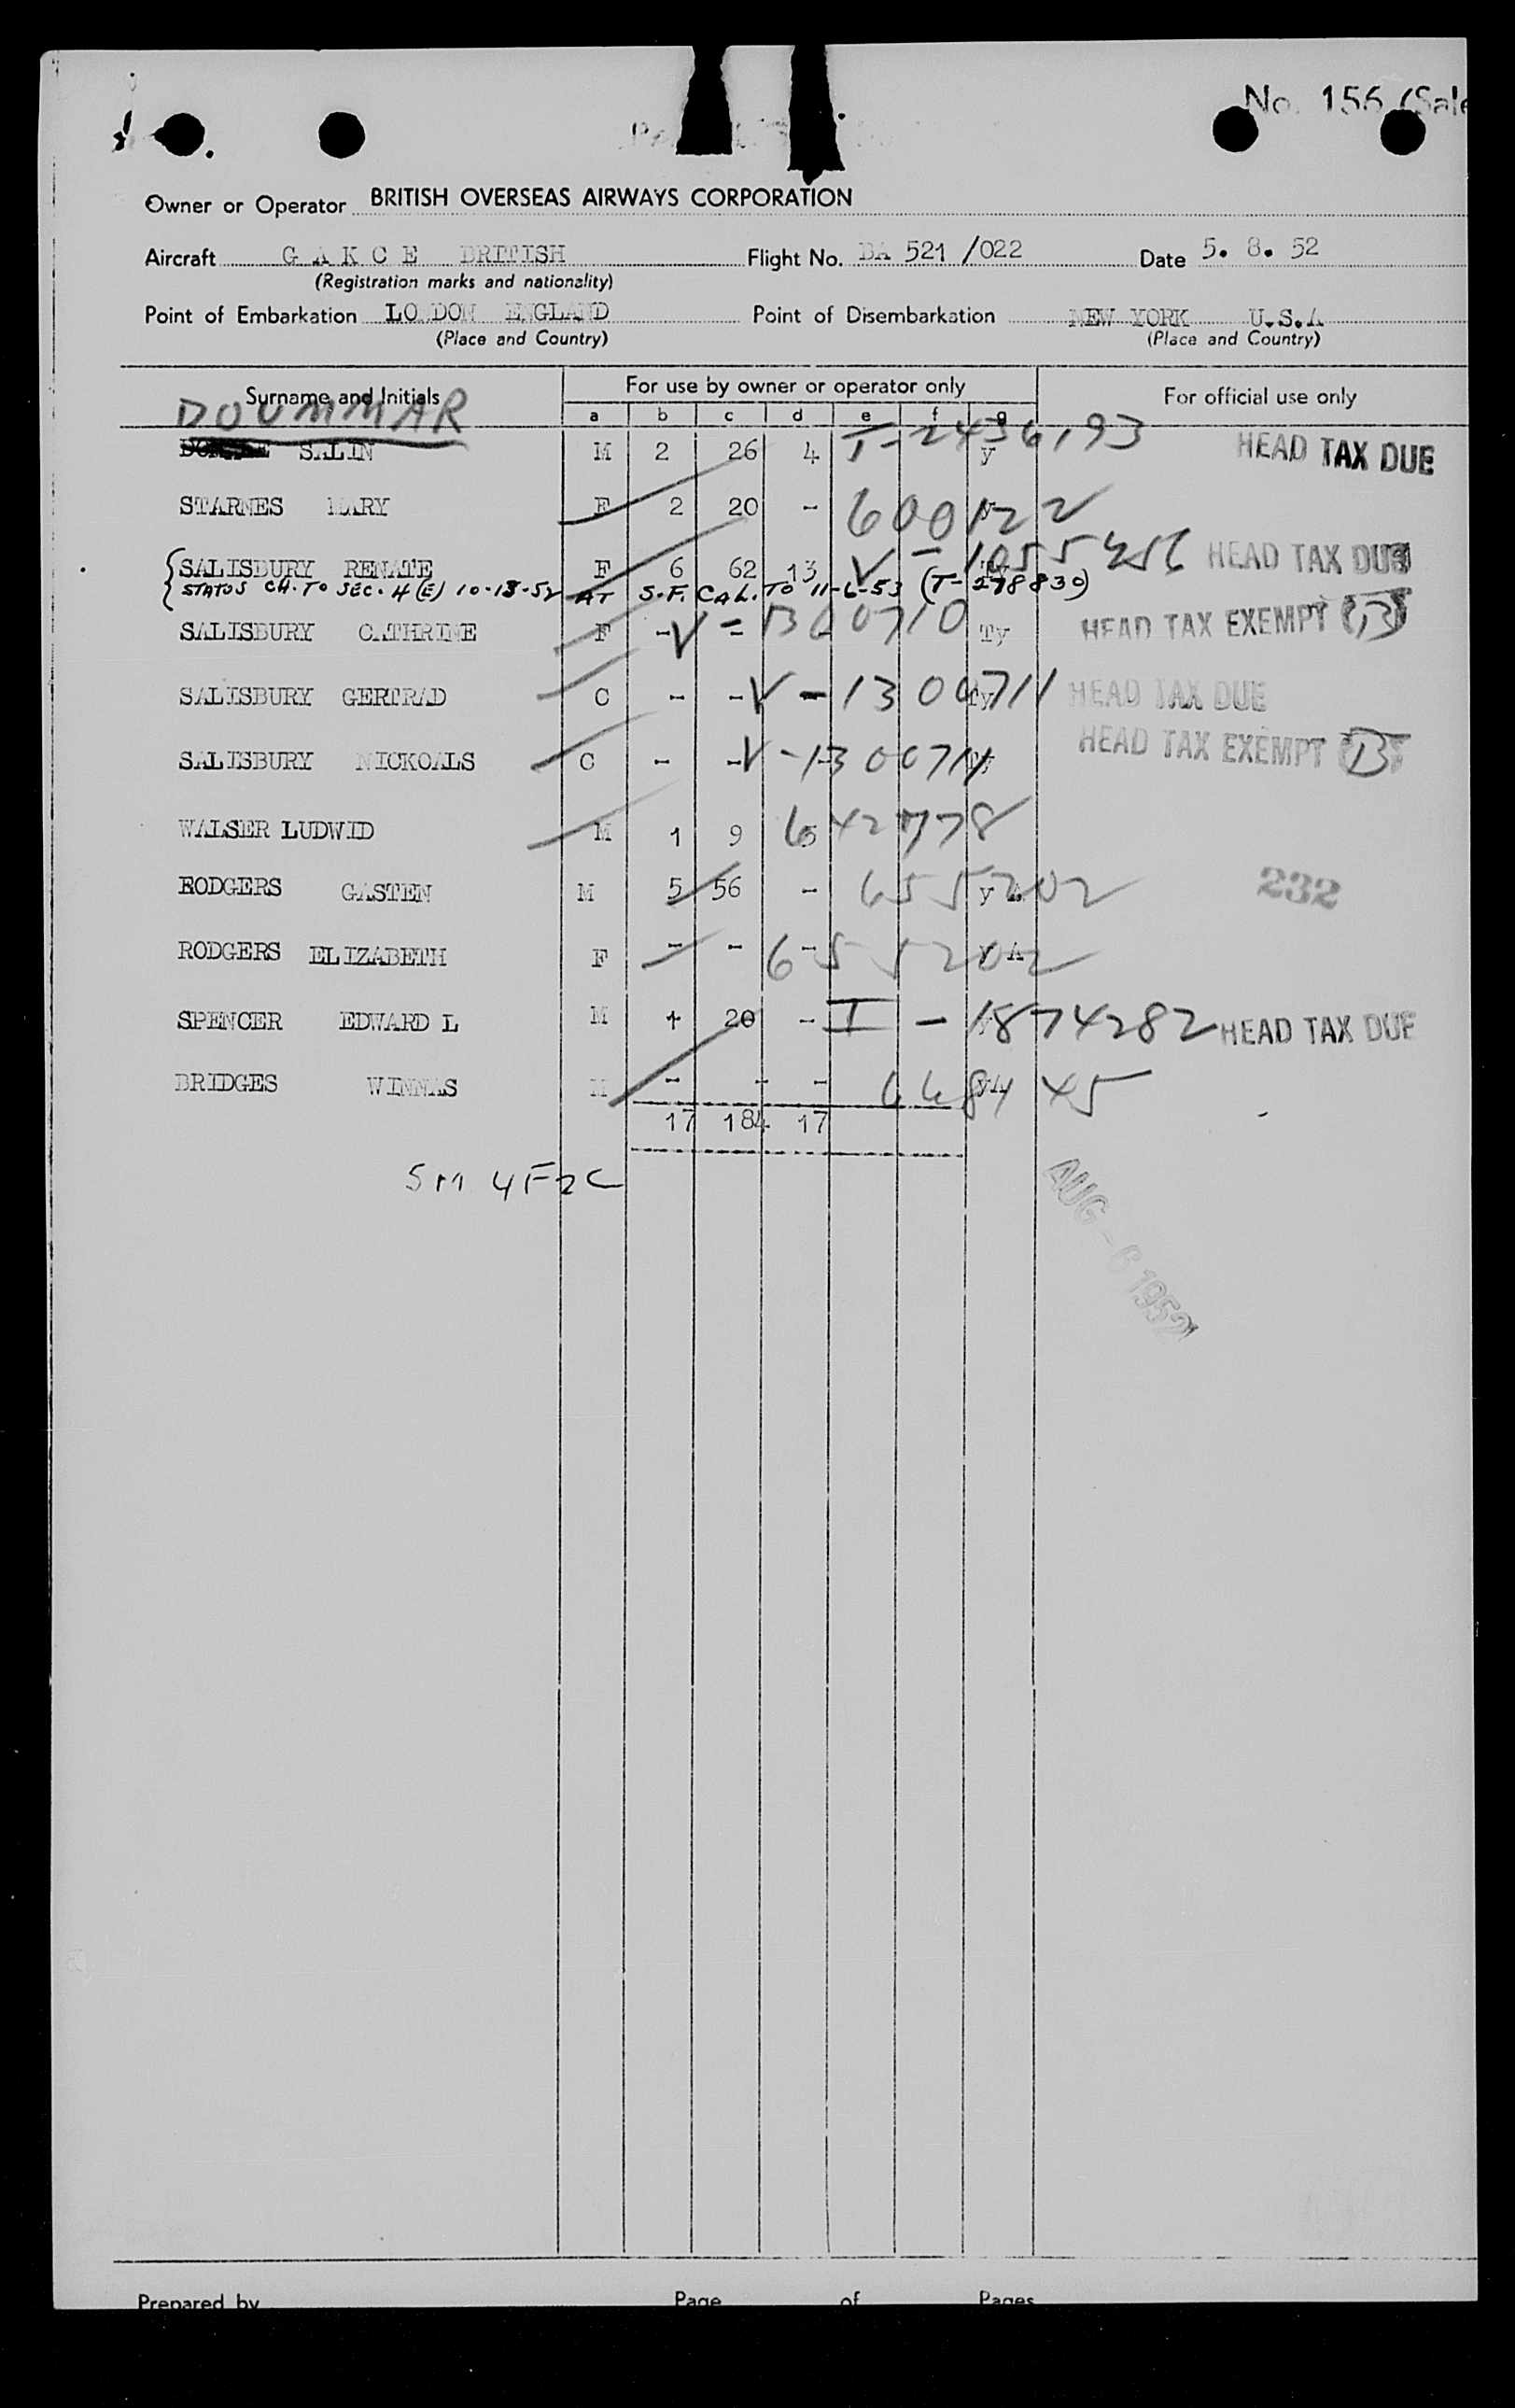 No. 156 (Sale
Owner or Operator BRITISH OVERSEAS AIRWAYS CORPORATION
Aircraft G A K C E BRITISH Flight No. BA 521 /022 Date 5. 8. 52
(Registration marks and nationality)
Point of Embarkation LONDON ENGLAND Point of Disembarkation NEW YORK U.S.A
(Place and Country) (Place and Country)
Surname and Initials For use by owner or operator only For official use only
a b c d e f g
DOUMMAR
SALIN M 2 26 4 T-2436193 y HEAD TAX DUE
STARNES MARY F 2 20 - 600122
SALISBURY RENATE F 6 62 13 V-1055456 HEAD TAX DUE
STATUS CH. TO SEC. 4 (E) 10-13-52 AT S.F. CAL. TO 11-6-53 (T-278830)
SALISBURY CATHRINE F - - V-1300710 Ty HEAD TAX EXEMPT B
SALISBURY GERTRAD C - - V-1300711 Ty HEAD TAX DUE
SALISBURY NICKOALS C - - V-1300714 HEAD TAX EXEMPT B
WALSER LUDWID M 1 9 642778
RODGERS GASTEN M 5 56 - 655202 y 232
RODGERS ELIZABETH F - - - 655202 y A
SPENCER EDWARD L M 1 20 - I-1874282 HEAD TAX DUE
BRIDGES WINNAS M - - - 668445
17 184 17
5M 4F 2C
AUG - 6 1952
Prepared by Page of Pages